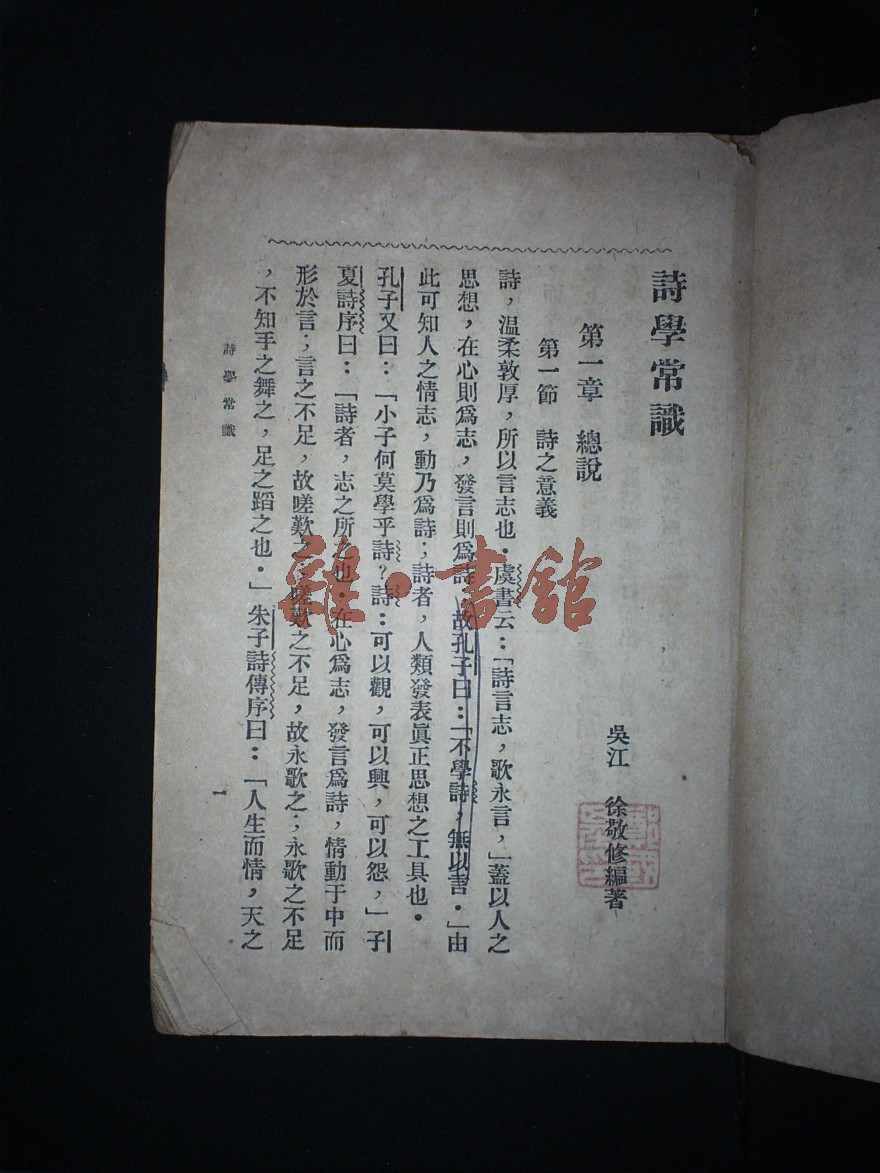 詩學常識
吳江　徐敬修編著
第一章　總說
第一節　詩之意義
詩，溫柔敦厚，所以言志也．虞書云：「詩言志，歌永言，」蓋以人之
思想，在心則爲志，發言則爲詩，故孔子曰：「不學詩，無以言．」由
此可知人之情志，動乃爲詩；詩者，人類發表眞正思想之工具也．
孔子又曰：「小子何莫學乎詩？詩：可以觀，可以興，可以怨，」子
夏詩序曰：「詩者，志之所之也．在心爲志，發言爲詩，情動于中而
形於言；言之不足，故嗟歎之；嗟歎之不足，故永歌之；永歌之不足
，不知手之舞之，足之蹈之也．」朱子詩傳序曰：「人生而情，天之
詩學常識
一
雜·書舘